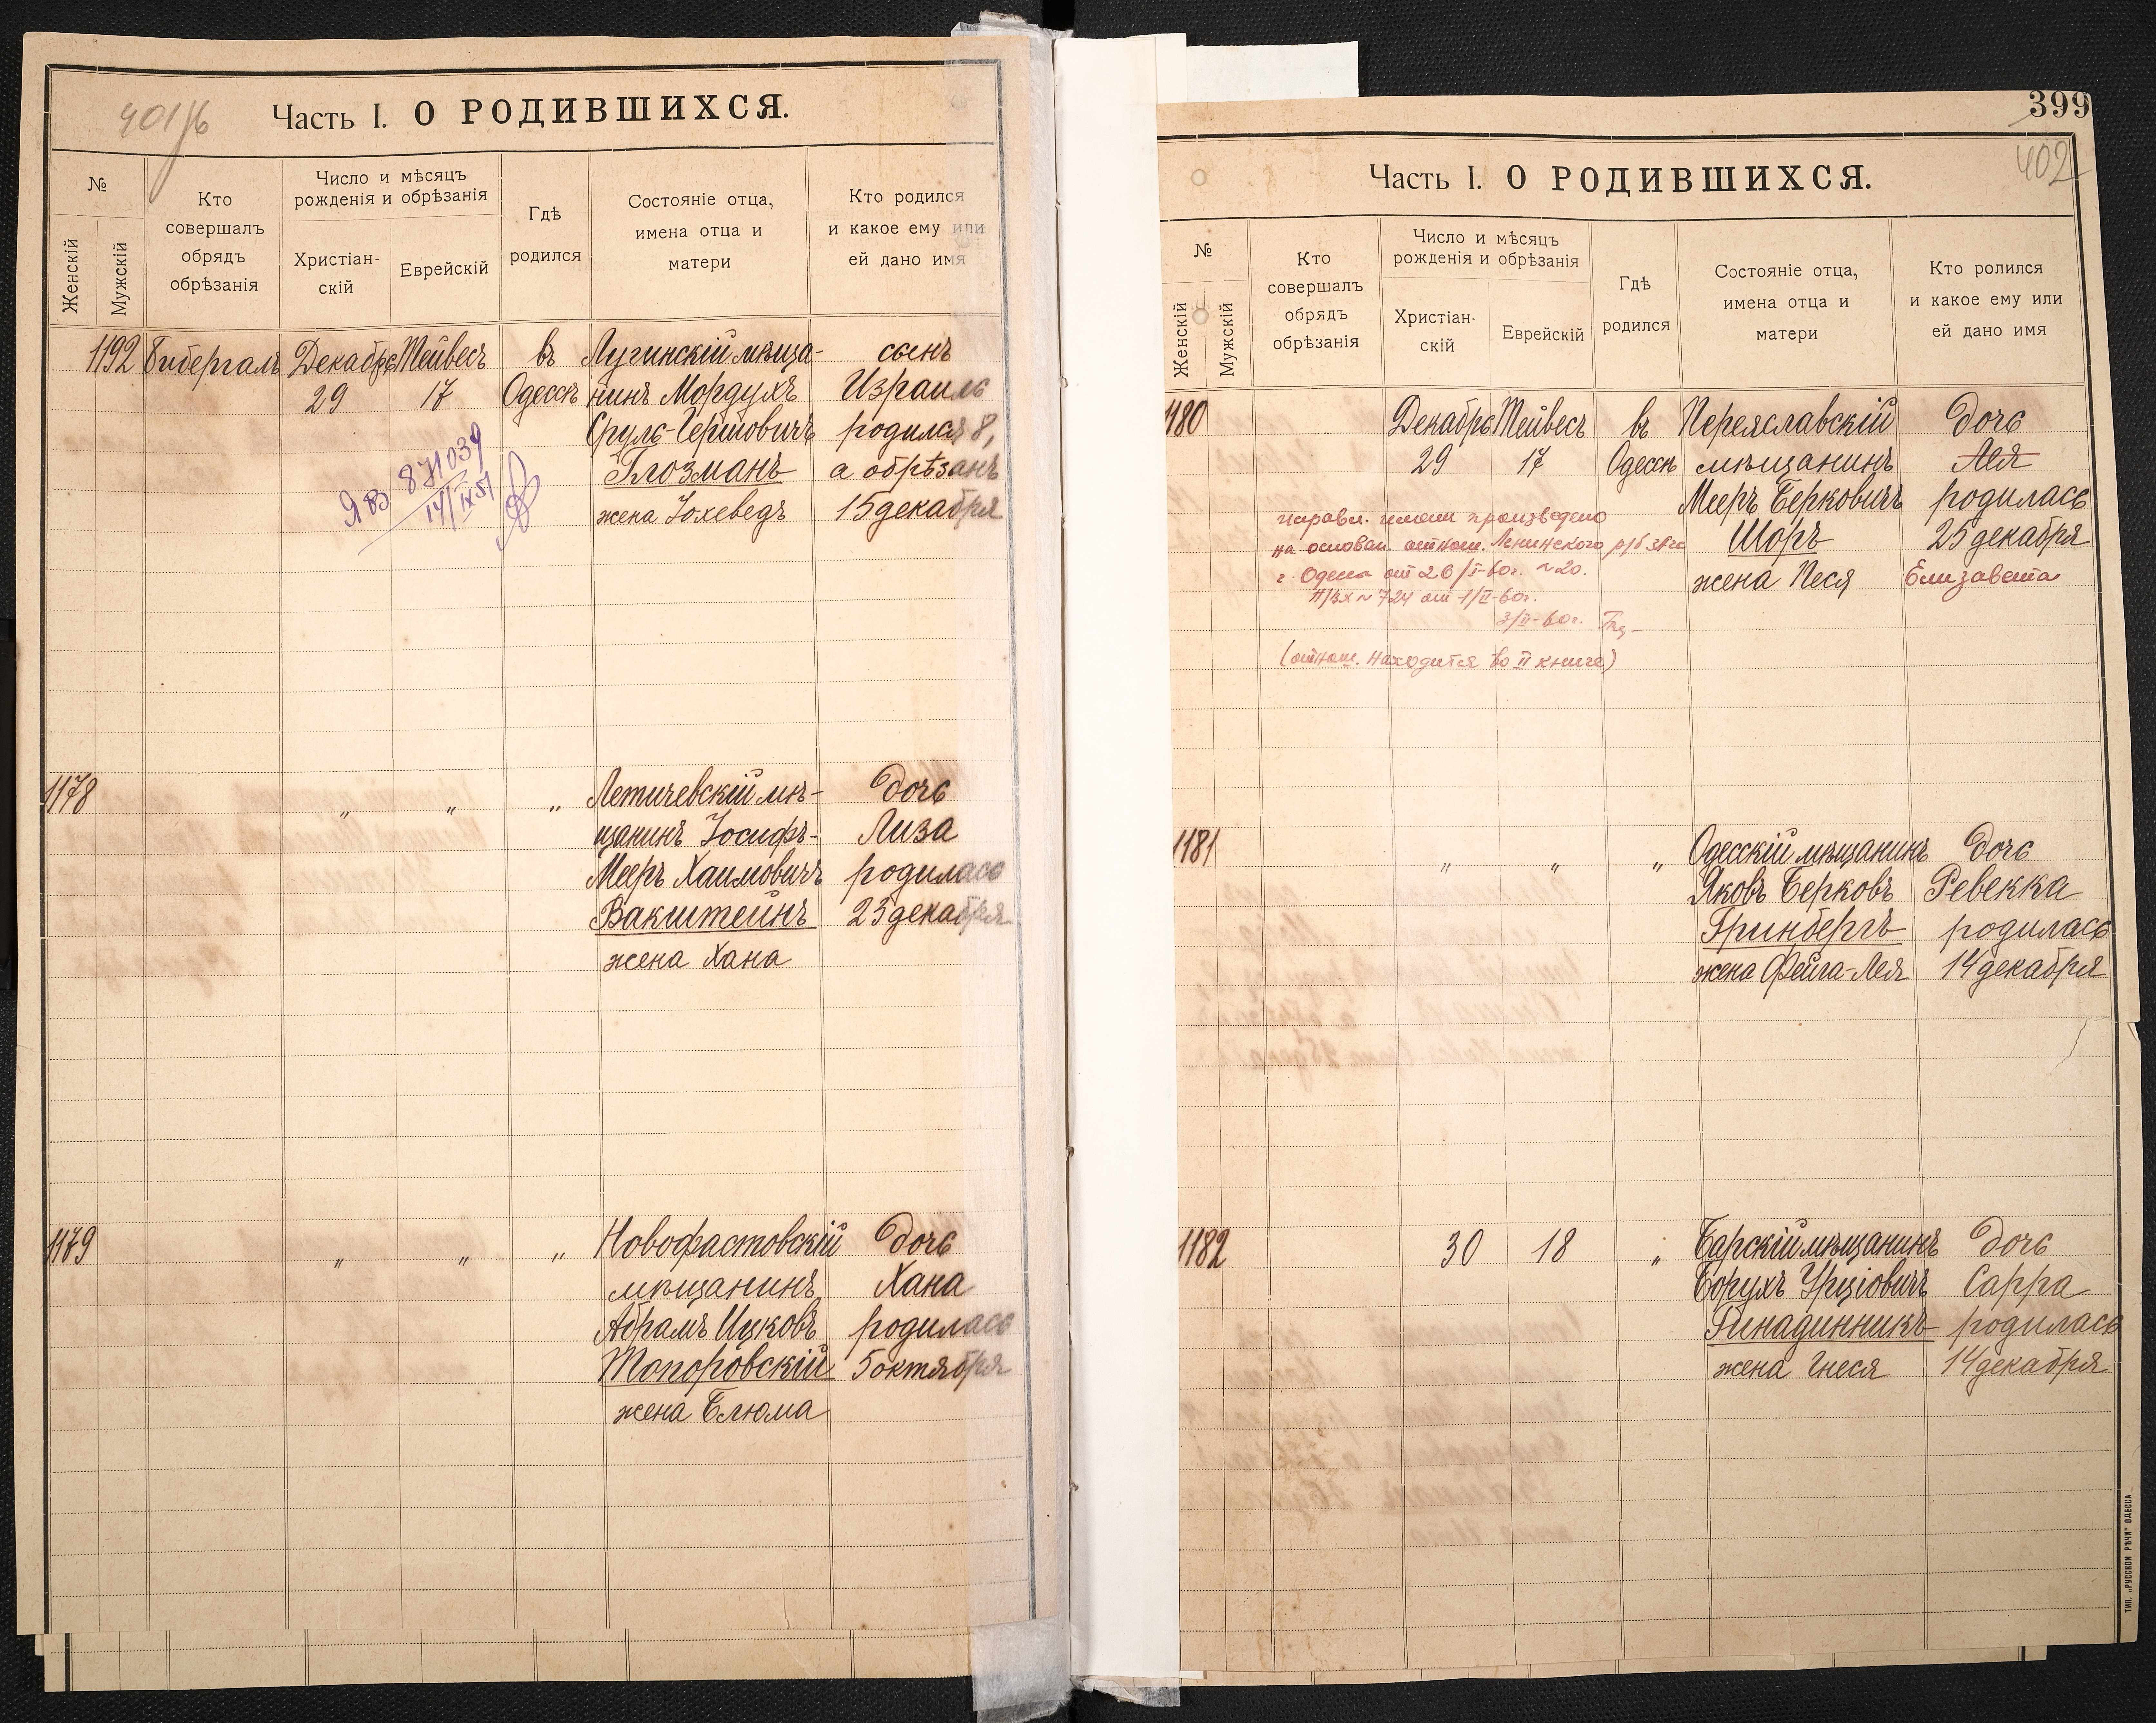 401/б
Часть I. О РОДИВШИХСЯ.
№
Женскій
Мужскій
Кто
совершалъ
обрядъ
обрѣзанія
Число и мѣсяцъ
рожденія и обрѣзанія
Христіан-
скій
Еврейскій
Гдѣ
родился
Состояніе отца,
имена отца и
матери
Кто родился
и какое ему или
ей дано имя
1192 Бибергалъ Декабрь Тейвесъ въ Лугинскій мѣща- сынъ
29 17 Одессѣ нинъ Мордухъ Израиль
Сруль-Гершовичъ родился 8,
Глозманъ а обрѣзанъ
жена Іохеведъ 15 декабря
871039
14/IX 51
1178 „ „ „ Летичевскій мѣ- дочь
щанинъ Іосифъ- Лиза
Мееръ Хаимовичъ родилась
Вакштейнъ 23 декабря
жена Хана
1179 „ „ „ Новофастовскій дочь
мѣщанинъ Хана
Абрамъ Ицковъ родилась
Топоровскій 5 октября
жена Блюма
399
402
Часть I. О РОДИВШИХСЯ.
№
Женскій
Мужскій
Кто
совершалъ
обрядъ
обрѣзанія
Число и мѣсяцъ
рожденія и обрѣзанія
Христіан-
скій
Еврейскій
Гдѣ
родился
Состояніе отца,
имена отца и
матери
Кто ролился
и какое ему или
ей дано имя
1180 Декабрь Тейвесъ въ Переяславскій дочь
29 17 Одессѣ мѣщанинъ Лея
Мееръ Берковичъ родилась
Шоръ 25 декабря
жена Песя Елизавета
исправл. имени произведено
на основан. отнош. Ленинского р/б загс
г. Одессы от 26/I-60г. №20.
№ 724 от 1/II-60г.
3/II-60г.
(отнош. находится во II книге)
1181 „ „ „ Одесскій мѣщанинъ дочь
Яковъ Берковъ Ревекка
Гринбергъ родилась
жена Фейга-Лея 14 декабря
1182 30 18 „ Барскій мѣщанинъ дочь
Борухъ Урціовичъ Сарра
Гинадинникъ родилась
жена Гнеся 14 декабря
ТИП. „РУССКОЙ РѢЧИ" ОДЕССА